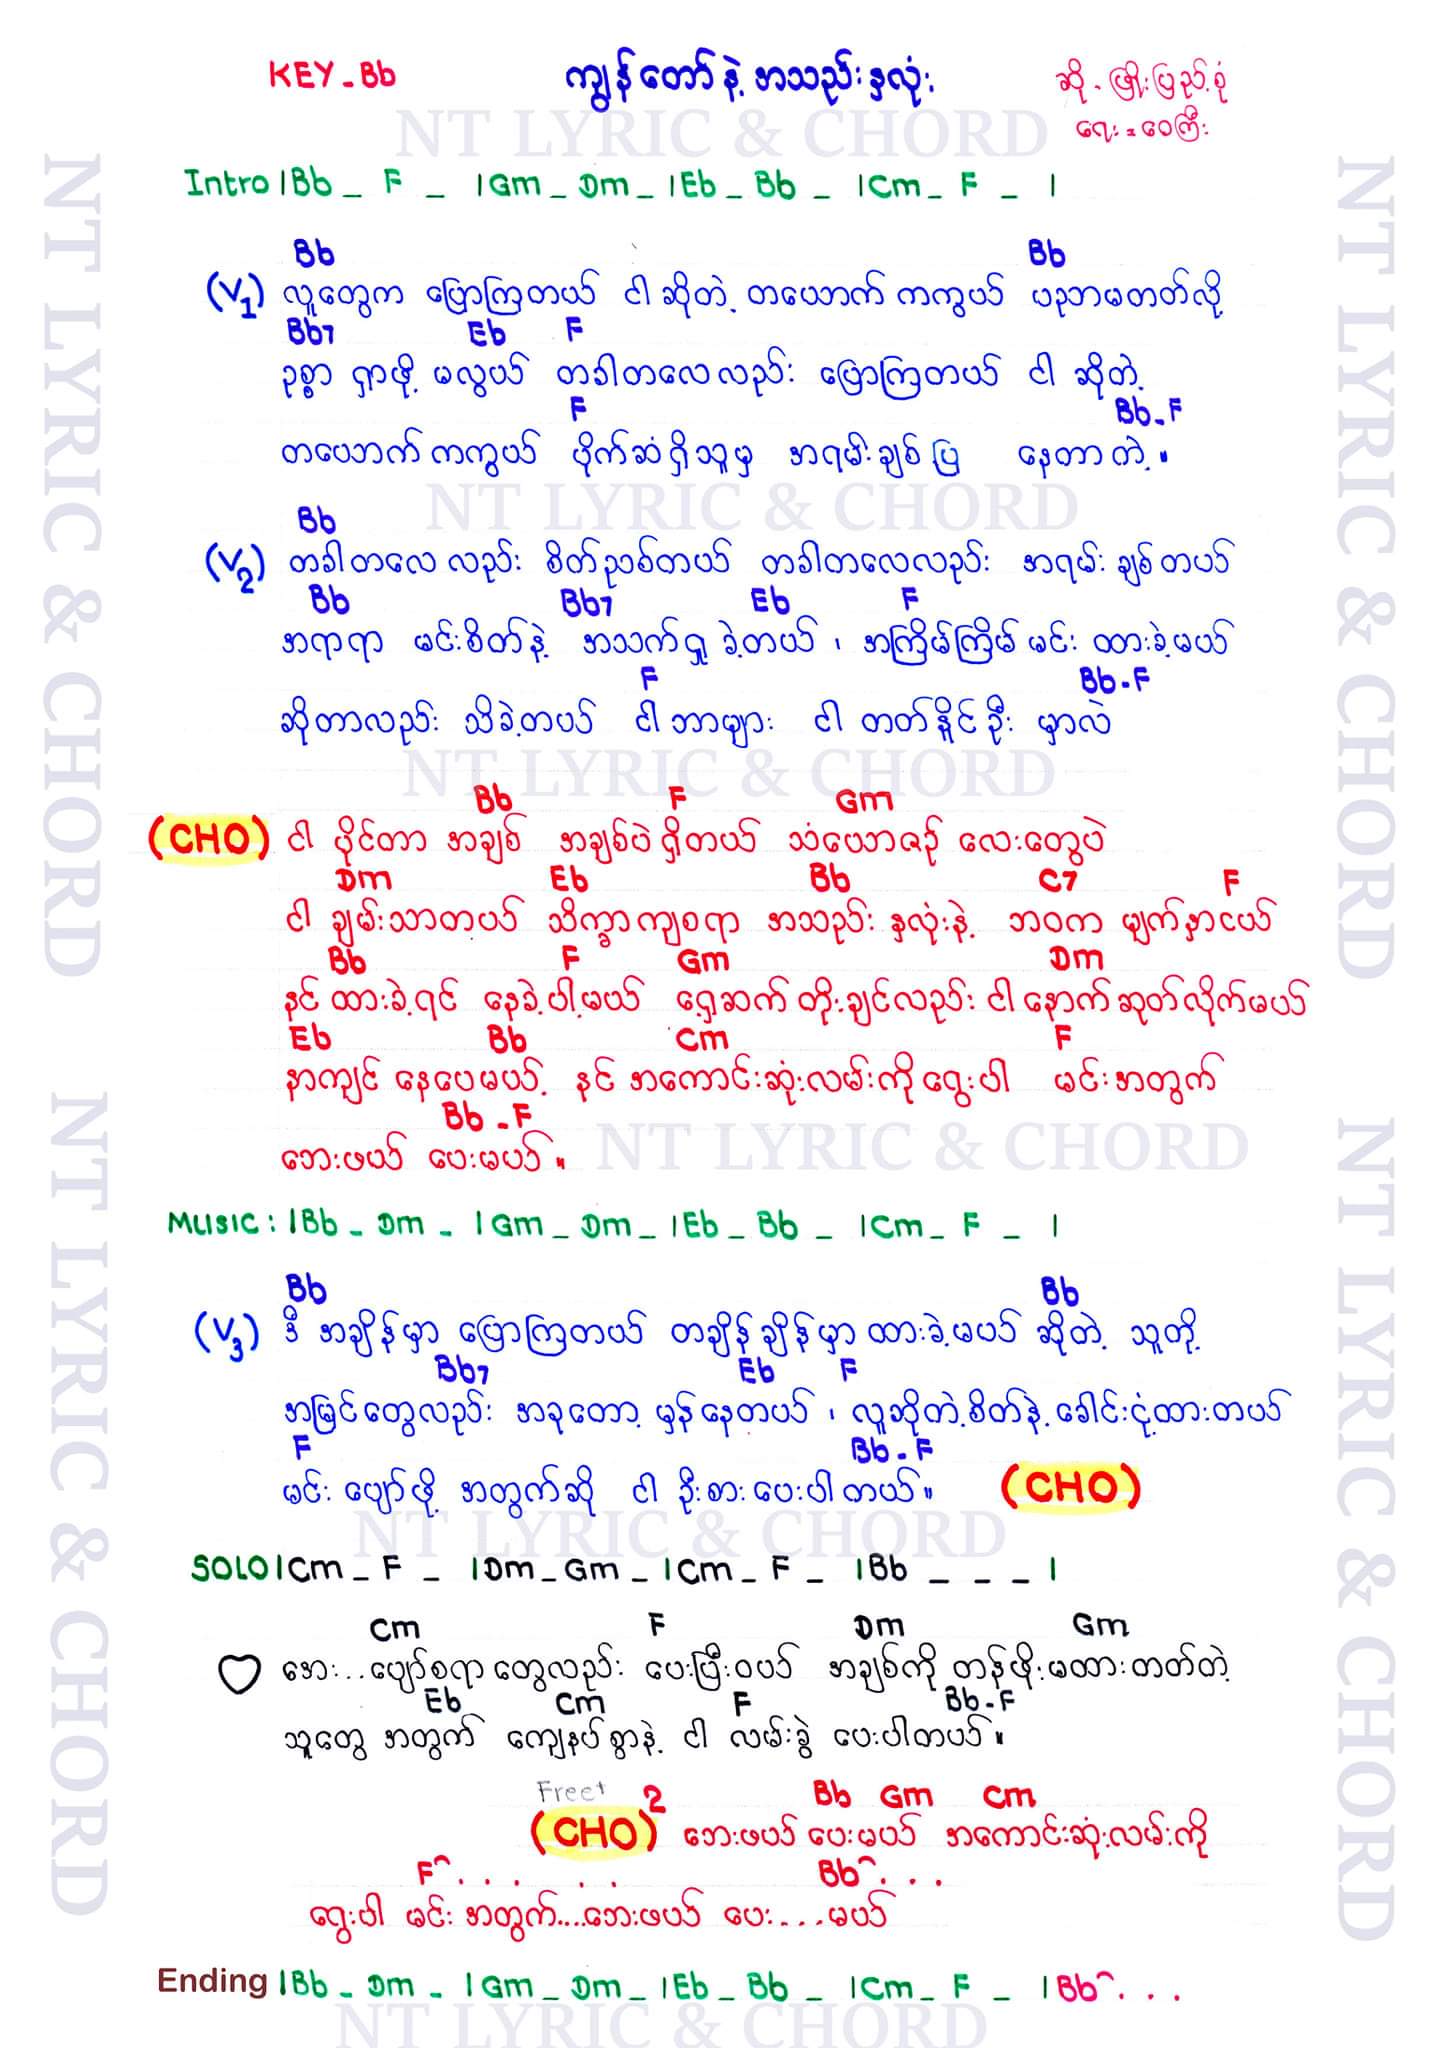 KEY - Bb
ကျွန်တော်နဲ့ အသည်းနှလုံး
ဆို - ဖြိုးပြည့်စုံ
ရေး = ဝေကြီး
NT LYRIC & CHORD
Intro |Bb _ F _ |Gm _ Dm _ |Eb _ Bb _ |Cm _ F _ |
Bb Bb
(V1) လူတွေက ပြောကြတယ် ငါ ဆိုတဲ့ တယောက် ကကွယ် ပဉာမတတ်လို့
Bb7 Eb F
ဥစ္စာ ရှာဖို့ မလွယ် တခါတလေလည်း ပြောကြတယ် ငါ ဆိုတဲ့
F Bb-F
တယောက် ကကွယ် ပိုက်ဆံရှိသူမှ အရမ်းချစ်ပြ နေတာတဲ့။
NT LYRIC & CHORD
Bb
(V2) တခါတလေ လည်း စိတ်ညစ်တယ် တခါတလေလည်း အရမ်းချစ်တယ်
Bb Bb7 Eb F
အရာရာ မင်းစိတ်နဲ့ အသက်ရှူခဲ့တယ်၊ အကြိမ်ကြိမ် မင်း ထားခဲ့မယ်
F Bb-F
ဆိုတာလည်း သိခဲ့တယ် ငါဘာများ ငါ တတ်နိုင်ဦး မှာလဲ
NT LYRIC & CHORD
Bb F Gm
(CHO) ငါ ပိုင်တာ အချစ် အချစ်ပဲရှိတယ် သံယောဇဉ် လေးတွေပဲ
Dm Eb Bb C7 F
ငါ ချမ်းသာတယ် သိက္ခာကျစရာ အသည်းနှလုံးနဲ့ ဘဝက မျက်နှာငယ်
Bb F Gm Dm
နင်ထားခဲ့ရင် နေခဲ့ပါ့မယ် ရှေ့ဆက်တိုးချင်လည်း ငါနောက်ဆုတ်လိုက်မယ်
Eb Bb Cm F
နာကျင် နေပေမယ့် နင် အကောင်းဆုံးလမ်းကိုရွေးပါ မင်းအတွက်
Bb - F
ဘေးဖယ် ပေးမယ်။
NT LYRIC & CHORD
MUSIC : |Bb _ Dm _ |Gm _ Dm _ |Eb _ Bb _ |Cm _ F _ |
Bb Bb
(V3) ဒီ အချိန်မှာ ပြောကြတယ် တချိန်ချိန်မှာထားခဲ့မယ် ဆိုတဲ့ သူတို့
Bb7 Eb F
အမြင်တွေလည်း အခုတော့ မှန်နေတယ်၊ လူဆိုတဲ့စိတ်နဲ့ခေါင်းငုံ့ထားတယ်
F Bb-F
မင်း ပျော်ဖို့ အတွက်ဆို ငါ ဦးစားပေးပါတယ်။ (CHO)
NT LYRIC & CHORD
SOLO |Cm _ F _ |Dm _ Gm _ |Cm _ F _ |Bb _ _ _ |
Cm F Dm Gm
အေး...ပျော်စရာတွေလည်း ပေးပြီးဝယ် အချစ်ကို တန်ဖိုးမထားတတ်တဲ့
Eb Cm F Bb-F
သူတွေ အတွက် ကျေနပ်စွာနဲ့ ငါ လမ်းခွဲ ပေးပါတယ်။
Free+ Bb Gm Cm
(CHO)2 ဘေးဖယ် ပေးမယ် အကောင်းဆုံးလမ်းကို
F^. . . . . Bb^. . .
ရွေးပါ မင်း အတွက်....ဘေးဖယ် ပေး....မယ်
Ending |Bb _ Dm _ |Gm _ Dm _ |Eb _ Bb _ |Cm _ F _ |Bb^. . .
NT LYRIC & CHORD
NT LYRIC & CHORD
NT LYRIC & CHORD
NT LYRIC & CHORD
NT LYRIC & CHORD